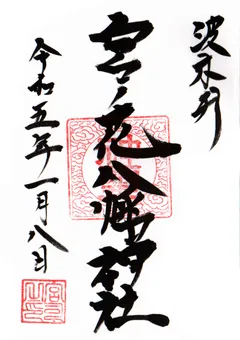 波木井
宮ノ花八幡神社
令和五年一月八日